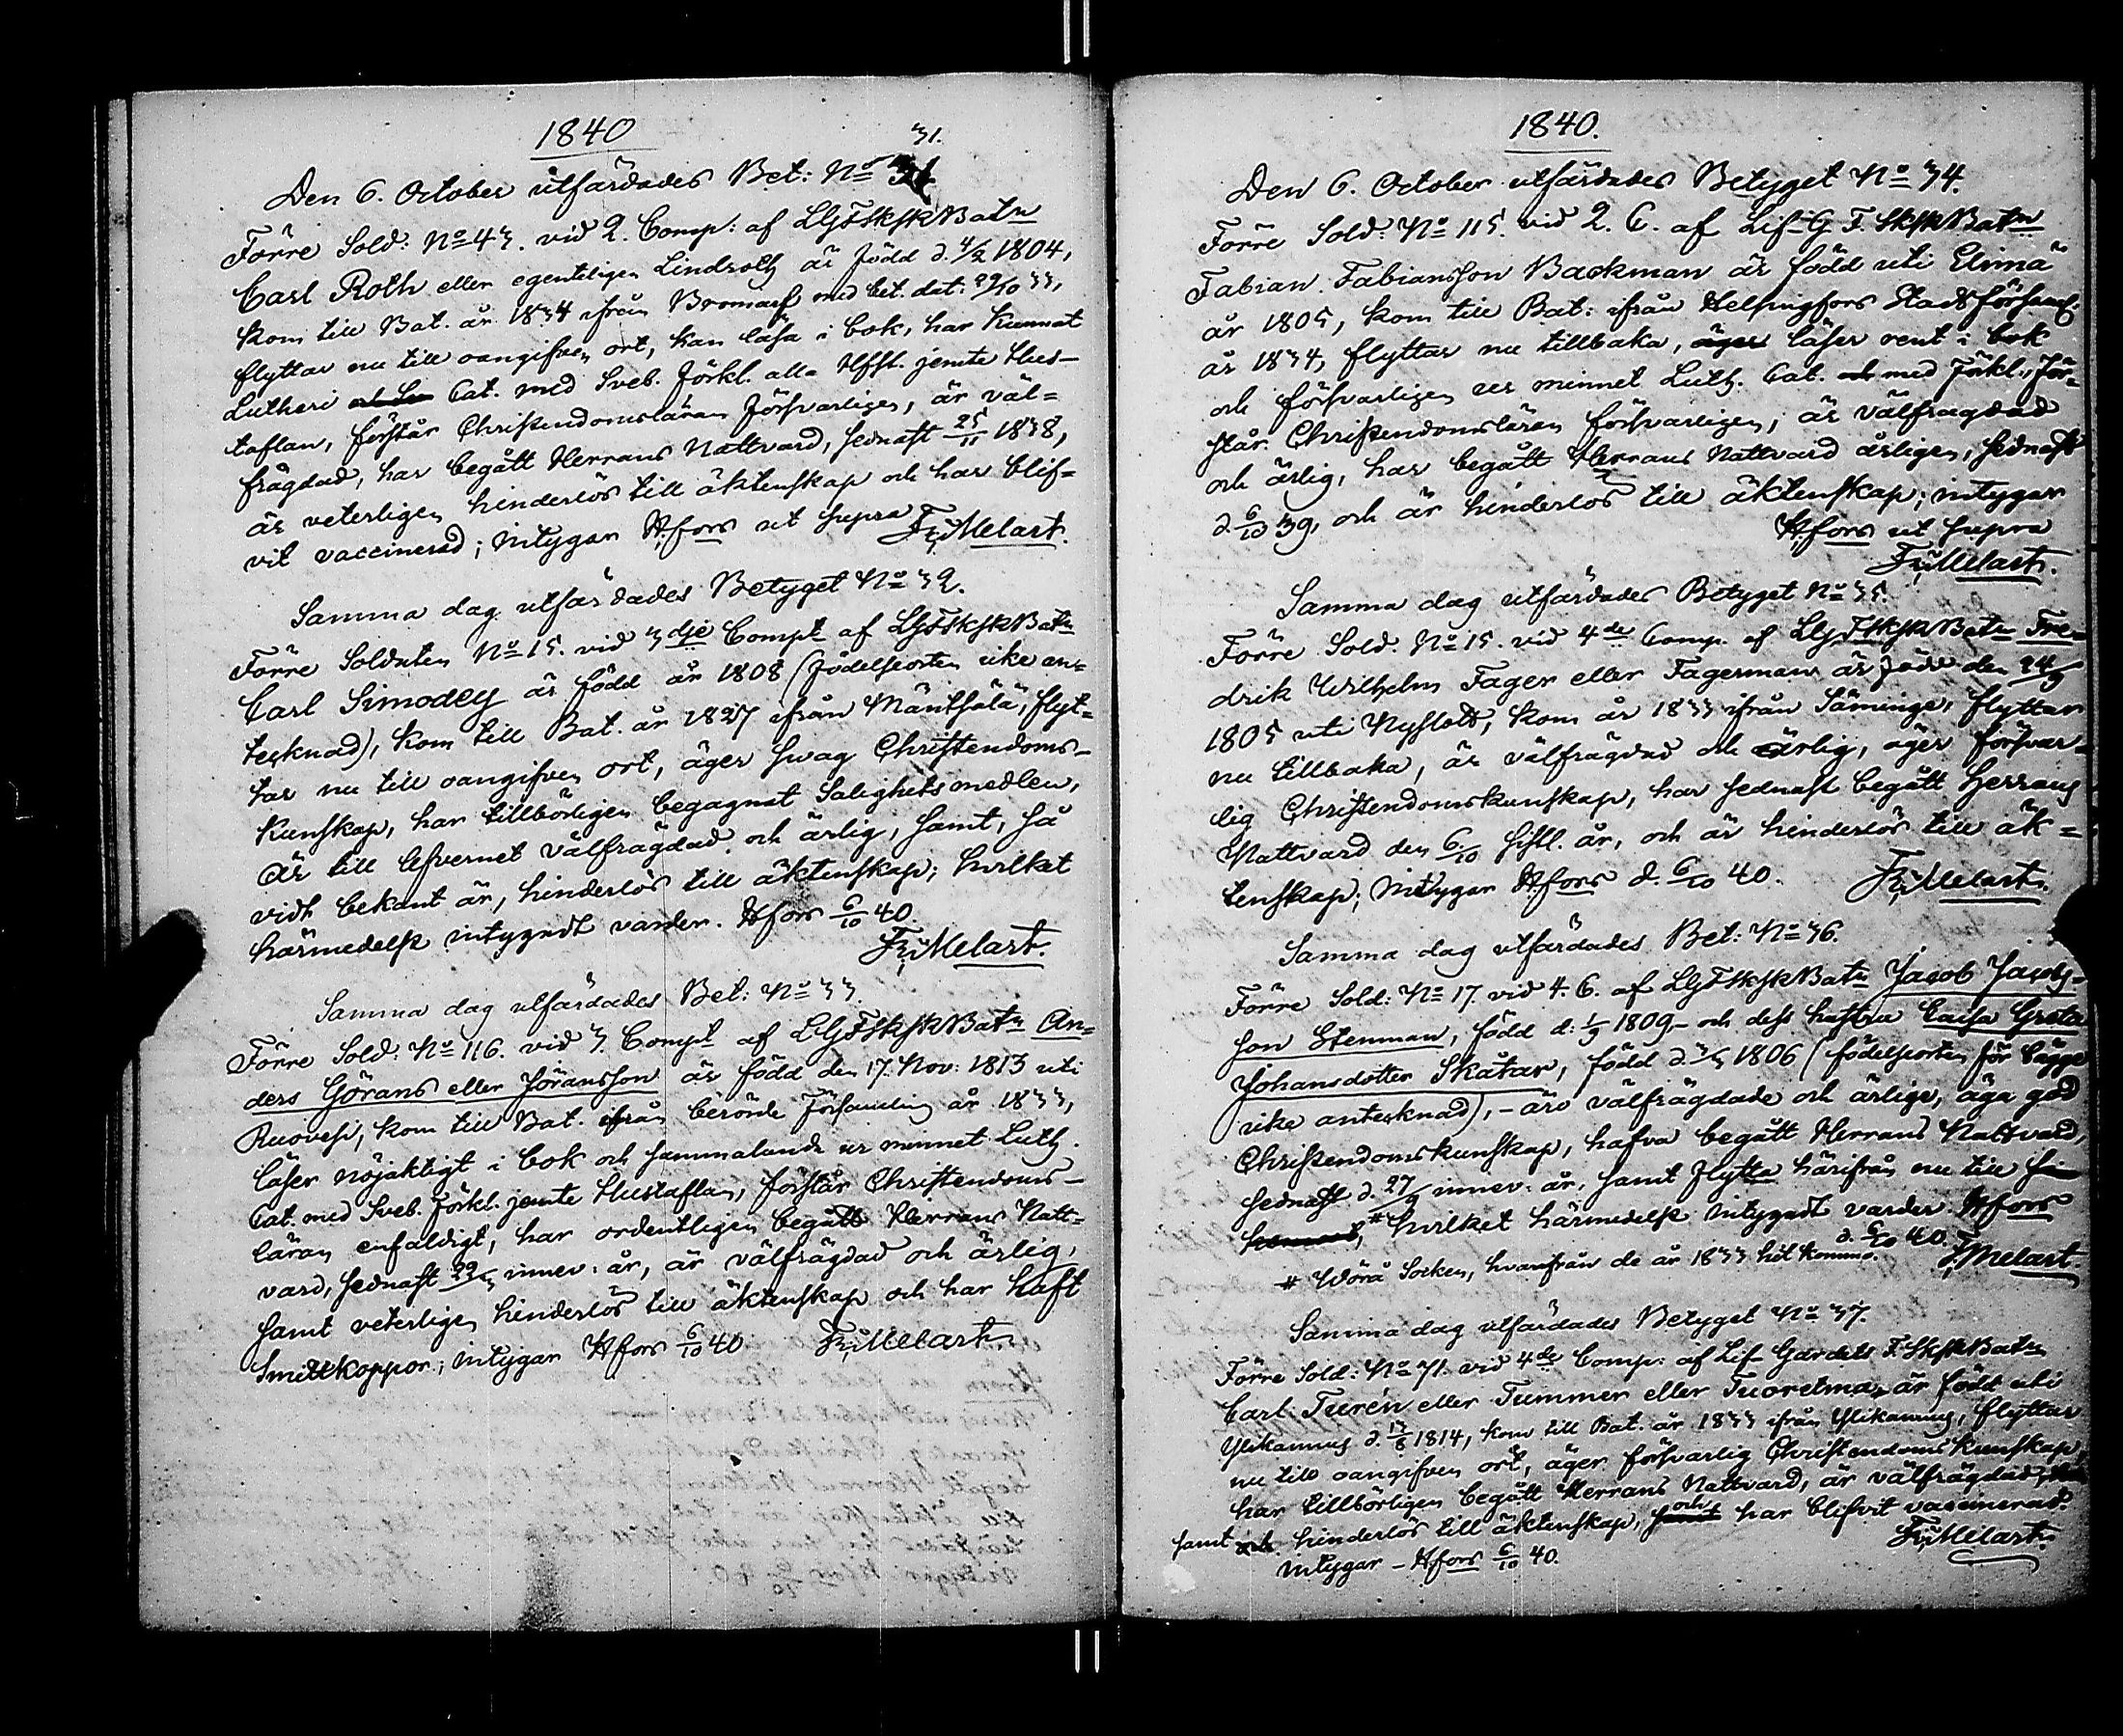 1840
31.
Den 6. October utfärdades Bet: No
Förre Sold: No 43. vid 2. Comp: af LGFSkskBatn
Carl Roth eller egenteligen Lindroth är född d. 4/2 1804,
kom till Bat. år 1834 ifrån Bromarf med bet. dat: 29/10 33,
flyttar nu till oangifven ort, kan läsa i bok, har kunnat
Lutheri Cat. med Sveb. förkl. alla Hfst. jemte Hus-
taflan, förstår Christendomsläran försvarligen, är väl=
frägdad, har begått Herrans Nattvard, sednast 25/11 1838,
är veterligen hinderlös till äktenskap och har blif=
vit vaccinerad; intygar Hfors ut supra
Fr: Melart.
Samma dag utfärdades Betyget No 32.
Förre Soldaten No 15. vid 3dje Compt af LGFSkskBatn
Carl Simodey är född år 1808 (födelseorten icke an=
tecknad), kom till Bat. år 1827 ifrån Mäntsälä, flyt=
tar nu till oangifven ort, äger swag Christendoms-
kunskap, har tillbörligen begagnat Salighetsmedlen,
är till lefvernet välfrägdad och ärlig, samt, så
vidt bekant är, hinderlös till äktenskap; hvilket
härmedelst intygadt varder. Hfors 6/10 40.
Fr: Melart.
Samma dag utfärdades Bet: No 33.
Förre Sold: No 116. vid 3. Compt af LGFSkskBatn An=
ders Görans eller Göransson är född den 17. Nov: 1813 uti
Ruovesi, kom till Bat. ifrån berörde Församling år 1833,
läser nöjaktigt i bok och sammalunda ur minnet Luth.
Cat. med Sveb. förkl. jemte Hustaflan, förstår Christendoms-
läran enfaldigt, har ordentligen begått Herrans Natt=
vard, sednast 29/3 innev: år, är välfrägdad och ärlig,
samt veterligen hinderlös till äktenskap och har haft
Smittkoppor; intygar Hfors 6/10 40. Fr: Melart.
1840.
Den 6. October utfärdades Betyget No 34.
Förre Sold: No 115. vid 2. C. af Lif-G. F. SkskBatn
Fabian Fabiansson Backman är född uti Elimä
år 1805, kom till Bat: ifrån Helsingfors Stadsförsaml.
år 1834, flyttar nu tillbaka, äger läser rent i bok
och försvarligen ur minnet Luth. Cat. och med förkl., för=
står Christendomsläran försvarligen, är välfrägdad
och ärlig, har begått Herrans Nattvard årligen, sednast
d. 6/10 39, och är hinderlös till äktenskap; intygar
Hfors ut supra
Fr: Melart.
Samma dag utfärdades Betyget No 35.
Förre Sold. No 15. vid 4de Comp. af LGFSkskBatn Fre=
drik Wilhelm Fager eller Fagerman är född den 24/5
1805 uti Nyslott, kom år 1833 ifrån Säminge, flyttar
nu tillbaka, är välfrägdad och ärlig, äger försvar=
lig Christendomskunskap, har sednast begått Herrans
Nattvard den 6/10 sistl. år, och är hinderlös till äk=
tenskap; intygar Hfors d. 6/10 40. Fr: Melart.
Samma dag utfärdades Bet: No 36.
Förre Sold: No 17. vid 4. C. af LGFSkskBatn Jacob Jacobs=
son Stenman, född d: 1/9 1809,- och dess hustru Caisa Greta
Johansdotter Skatar, född d. 3/5 1806 (födelseorten för bägge
icke antecknad), - äro välfrägdade och ärlige, äga god
Christendomskunskap, hafva begått Herrans Nattvard,
sednast d. 27/9 innev: år, samt flytta härifrån nu till
# hvilket härmedelst intygadt varder. Hfors
d. 6/10 40.
# Wörå Socken, hvarifrån de år 1833 hit kommo.
F: Melart.
Samma dag utfärdades Betyget No 37.
Förre Sold: No 71. vid 4de Comp: af Lif-Gardets F. SkskBatn
Carl Turén eller Tummer eller Tuoretma är född uti
Ylikannus d. 13/8 1814, kom till Bat. år 1833 ifrån Ylikannus, flyttar
nu till oangifven ort, äger försvarlig Christendomskunskap,
har tillbörligen begått Herrans Nattvard, är välfrägdad,
samt hinderlös till äktenskap, och har blifvit vaccinerad.
intygar - Hfors 6/10 40.
Fr: Melart.